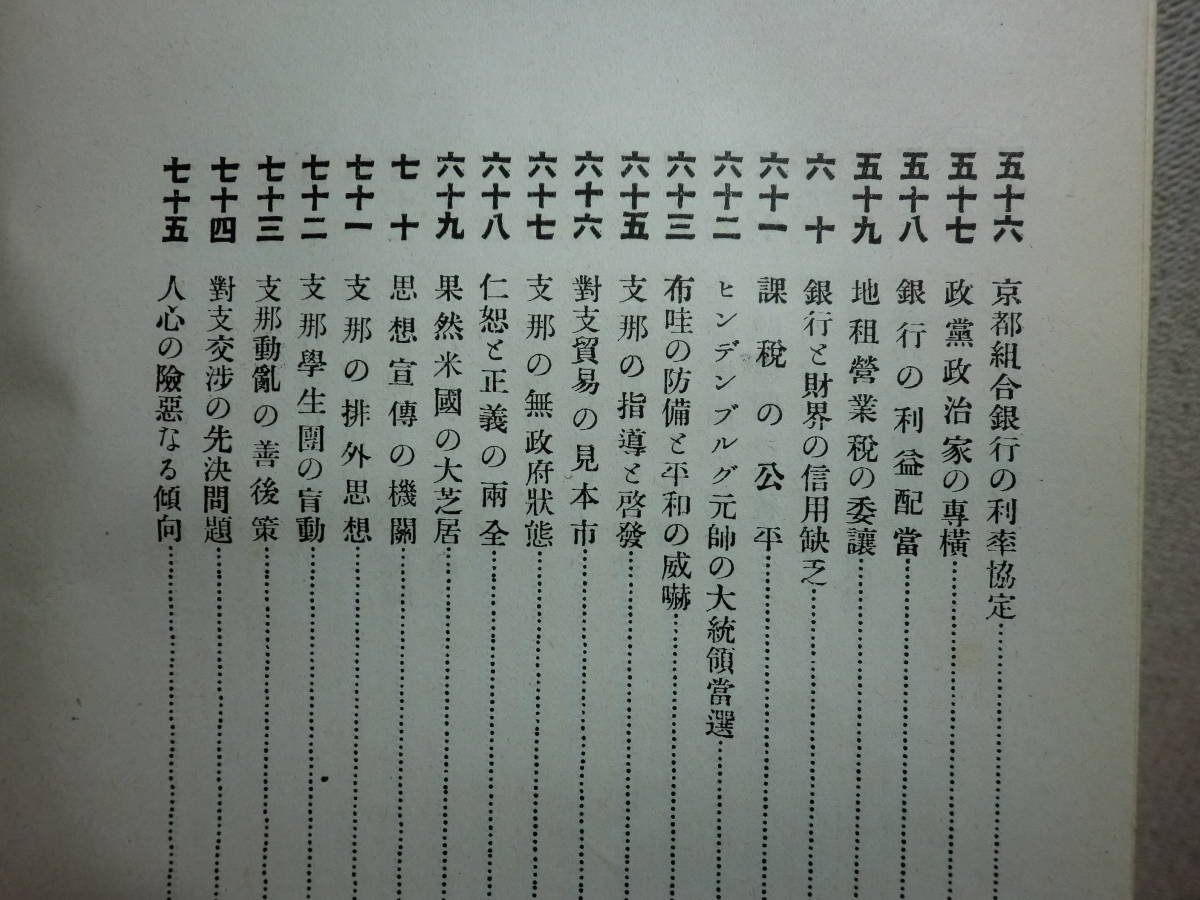 五十六 京都組合銀行の利率協定
五十七 政黨政治家の專橫
五十八 銀行の利益配當
五十九 地租營業稅の委讓
六十 銀行と財界の信用缺乏
六十一 課稅の公平
六十二 ヒンデンブルグ元帥の大統領當選
六十三 布哇の防備と平和の威嚇
六十五 支那の指導と啓發
六十六 對支貿易の見本市
六十七 支那の無政府狀態
六十八 仁恕と正義の兩全
六十九 果然米國の大芝居
七十 思想宣傳の機關
七十一 支那の排外思想
七十二 支那學生團の盲動
七十三 支那動亂の善後策
七十四 對支交涉の先決問題
七十五 人心の險惡なる傾向